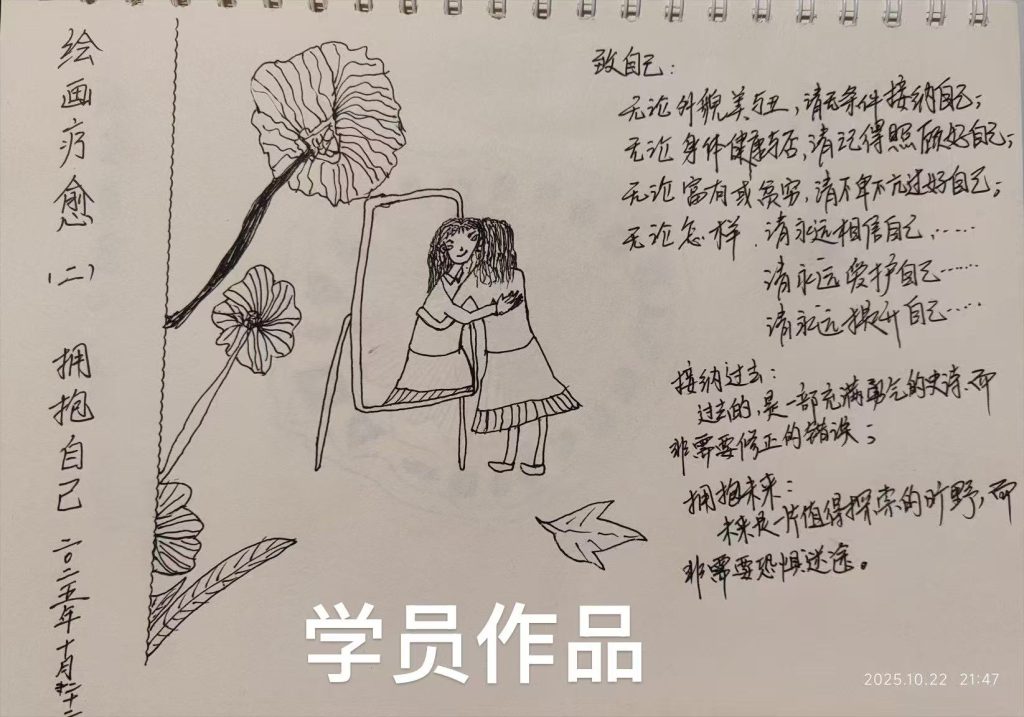 绘画疗愈
（二）
拥抱自己
二〇二五年十月二十二
致自己：
无论外貌美与丑，请无条件接纳自己；
无论身体健康与否，请记得照顾好自己；
无论富有或贫穷，请不卑不亢过好自己；
无论怎样，请永远相信自己……
请永远爱护自己……
请永远提升自己……
接纳过去：
过去的，是一部充满勇气的史诗，而
非需要修正的错误；
拥抱未来：
未来是一片值得探索的旷野，而
非需要恐惧迷途。
学员作品
2025.10.22 21:47